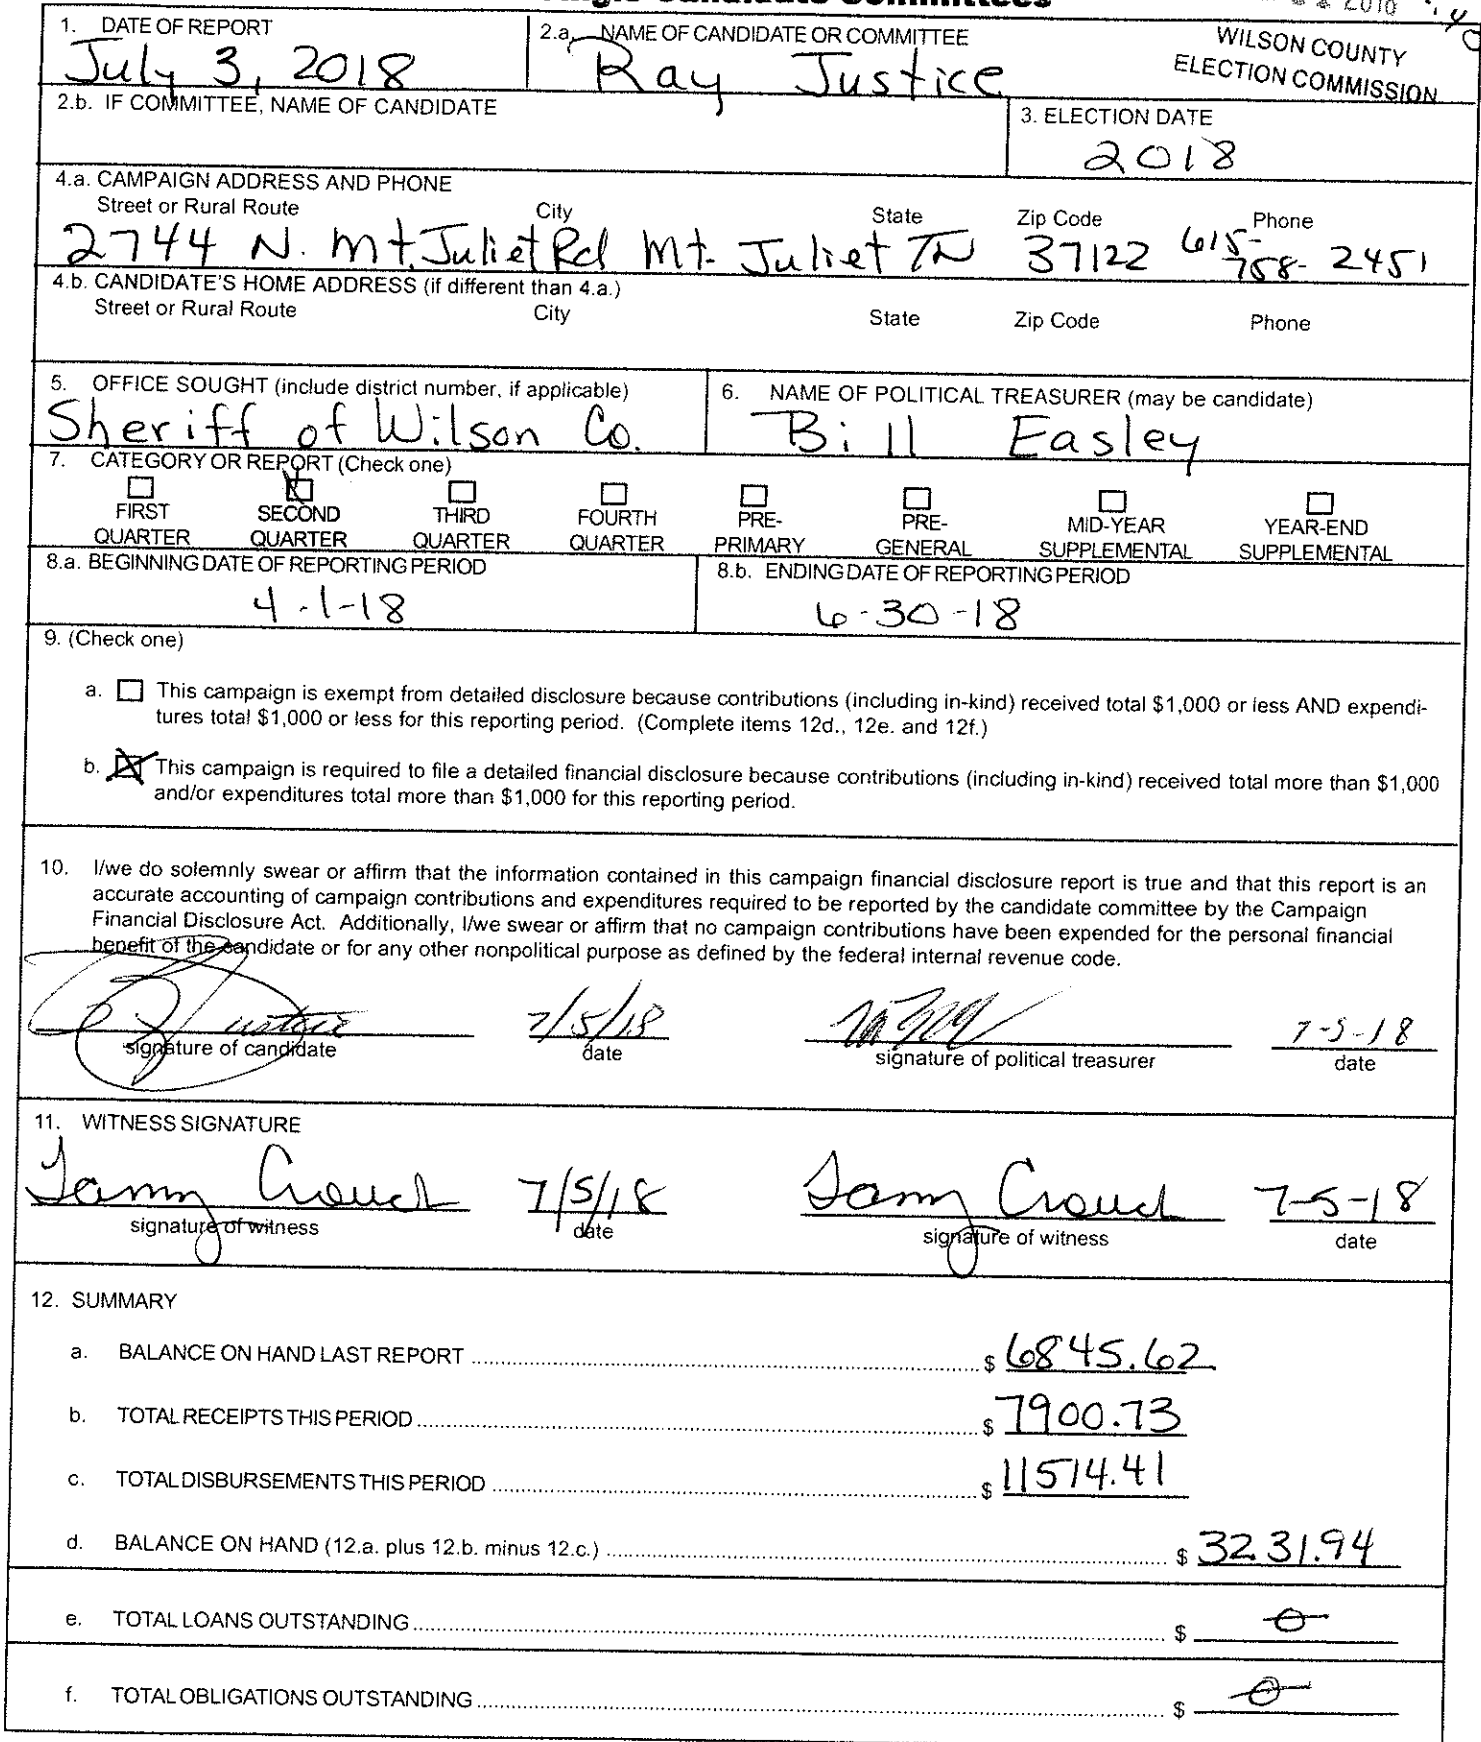 Candidate Committees
2010
1. DATE OF REPORT
July 3, 2018
2.a. NAME OF CANDIDATE OR COMMITTEE
Ray Justice
WILSON COUNTY
ELECTION COMMISSION
2.b. IF COMMITTEE, NAME OF CANDIDATE
3. ELECTION DATE
2018
4.a. CAMPAIGN ADDRESS AND PHONE
Street or Rural Route City State Zip Code Phone
2744 N. Mt. Juliet Rd Mt. Juliet TN 37122 615-758-2451
4.b. CANDIDATE'S HOME ADDRESS (if different than 4.a.)
Street or Rural Route City State Zip Code Phone
5. OFFICE SOUGHT (include district number, if applicable)
Sheriff of Wilson Co.
6. NAME OF POLITICAL TREASURER (may be candidate)
Bill Easley
7. CATEGORY OR REPORT (Check one)
FIRST QUARTER
SECOND QUARTER
THIRD QUARTER
FOURTH QUARTER
PRE-PRIMARY
PRE-GENERAL
MID-YEAR SUPPLEMENTAL
YEAR-END SUPPLEMENTAL
8.a. BEGINNING DATE OF REPORTING PERIOD
4-1-18
8.b. ENDING DATE OF REPORTING PERIOD
6-30-18
9. (Check one)
a. This campaign is exempt from detailed disclosure because contributions (including in-kind) received total $1,000 or less AND expendi-
tures total $1,000 or less for this reporting period. (Complete items 12d., 12e. and 12f.)
b. This campaign is required to file a detailed financial disclosure because contributions (including in-kind) received total more than $1,000
and/or expenditures total more than $1,000 for this reporting period.
10. I/we do solemnly swear or affirm that the information contained in this campaign financial disclosure report is true and that this report is an
accurate accounting of campaign contributions and expenditures required to be reported by the candidate committee by the Campaign
Financial Disclosure Act. Additionally, I/we swear or affirm that no campaign contributions have been expended for the personal financial
benefit of the candidate or for any other nonpolitical purpose as defined by the federal internal revenue code.
7/5/18 7-5-18
signature of candidate date signature of political treasurer date
11. WITNESS SIGNATURE
Tammy Crouch 7/5/18 Tammy Crouch 7-5-18
signature of witness date signature of witness date
12. SUMMARY
a. BALANCE ON HAND LAST REPORT $ 6845.62
b. TOTAL RECEIPTS THIS PERIOD $ 7900.73
c. TOTAL DISBURSEMENTS THIS PERIOD $ 11514.41
d. BALANCE ON HAND (12.a. plus 12.b. minus 12.c.) $ 3231.94
e. TOTAL LOANS OUTSTANDING $ 0
f. TOTAL OBLIGATIONS OUTSTANDING $ 0